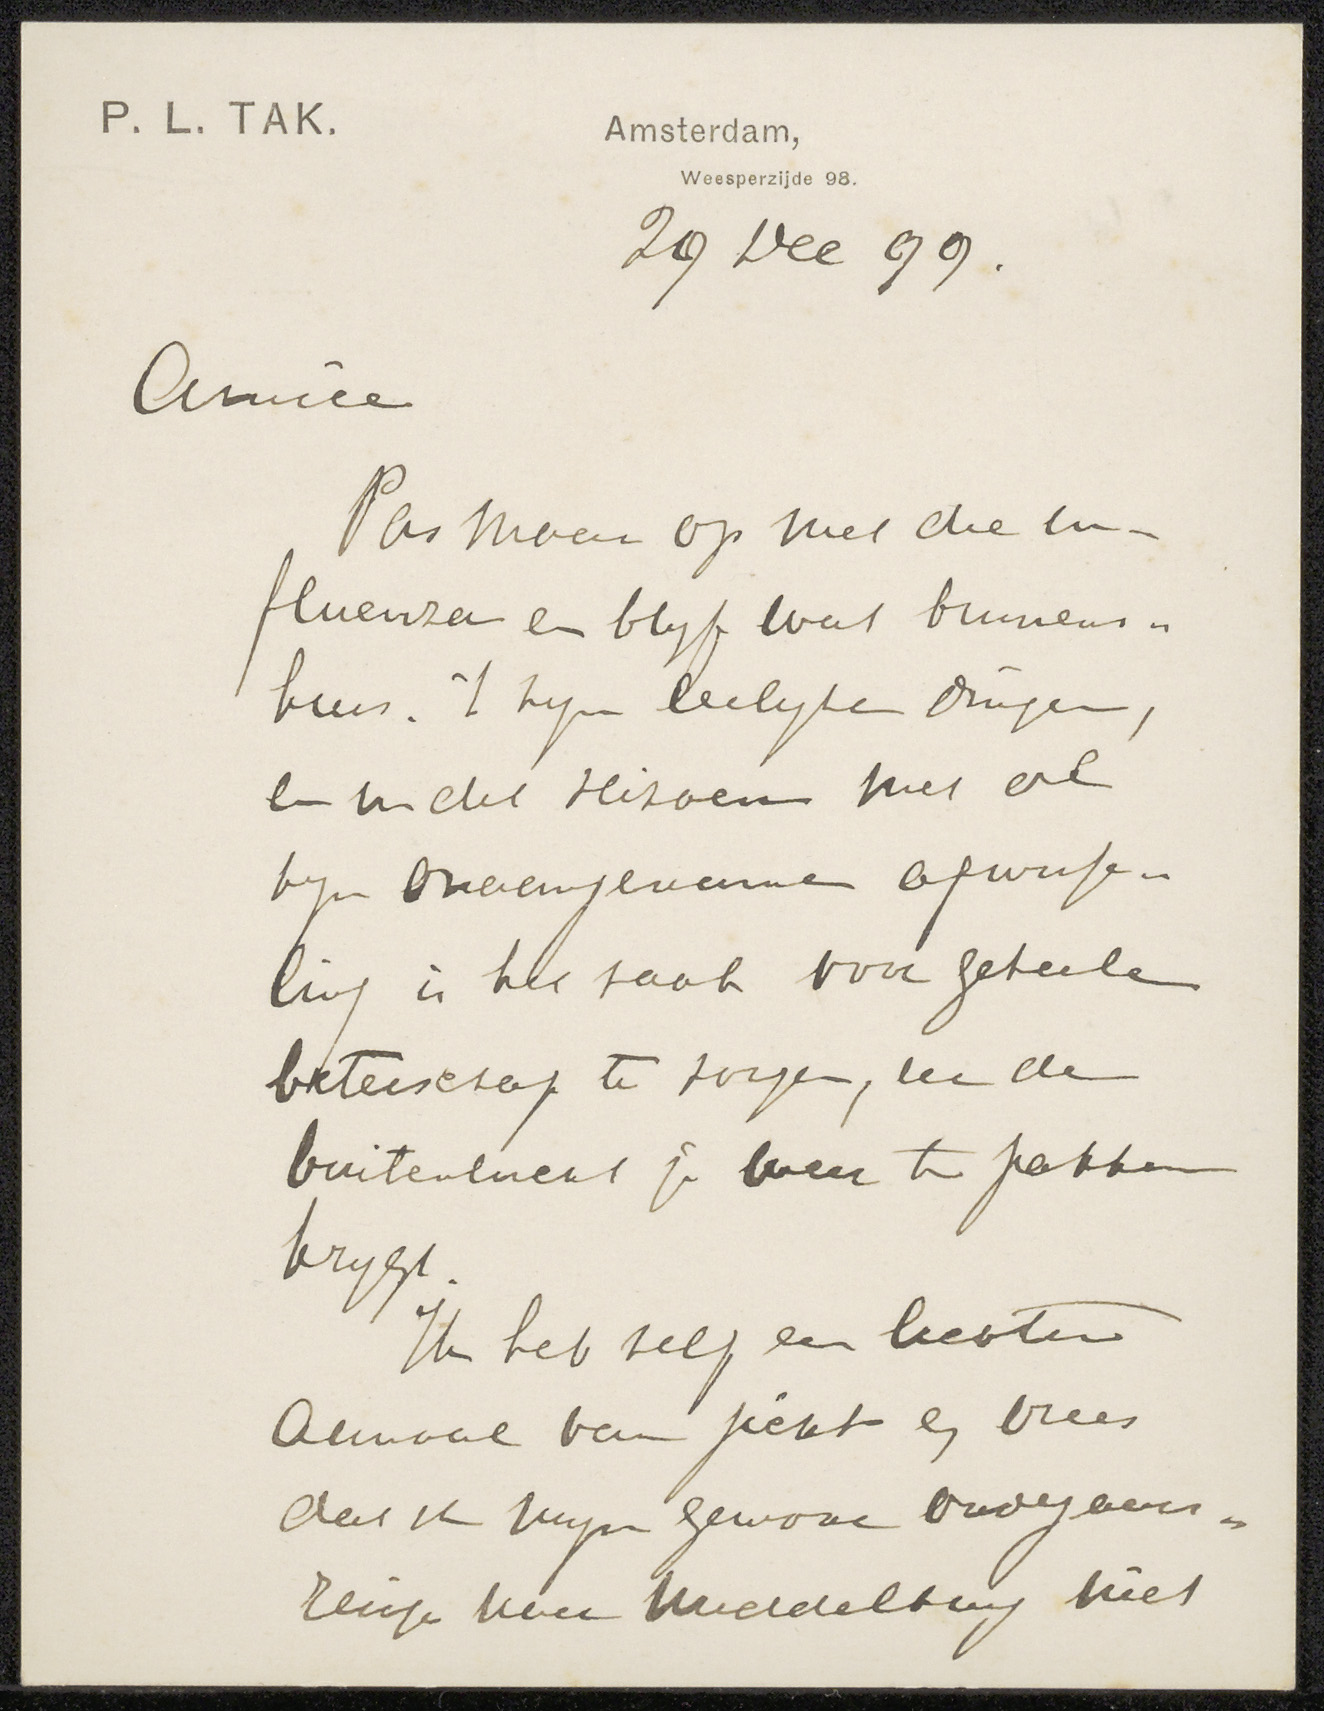 P. L. TAK.
Amsterdam,
Weesperzijde 98.
29 Dec 99.
Amice
Pas maar op met die in-
fluenza en blyf wat binnens-
huis. 't zyn leelyke dingen,
en in dit seizoen met al
zyn onaangename afwisse-
ling is het zaak voor geheele
beterschap te zorgen, eer de
buitenlucht je weer te pakken
krygt.
Ik heb zelf een lichten
aanval van jicht en vrees
dat ik myn gewone oudejaars-
reisje naar Middelburg niet